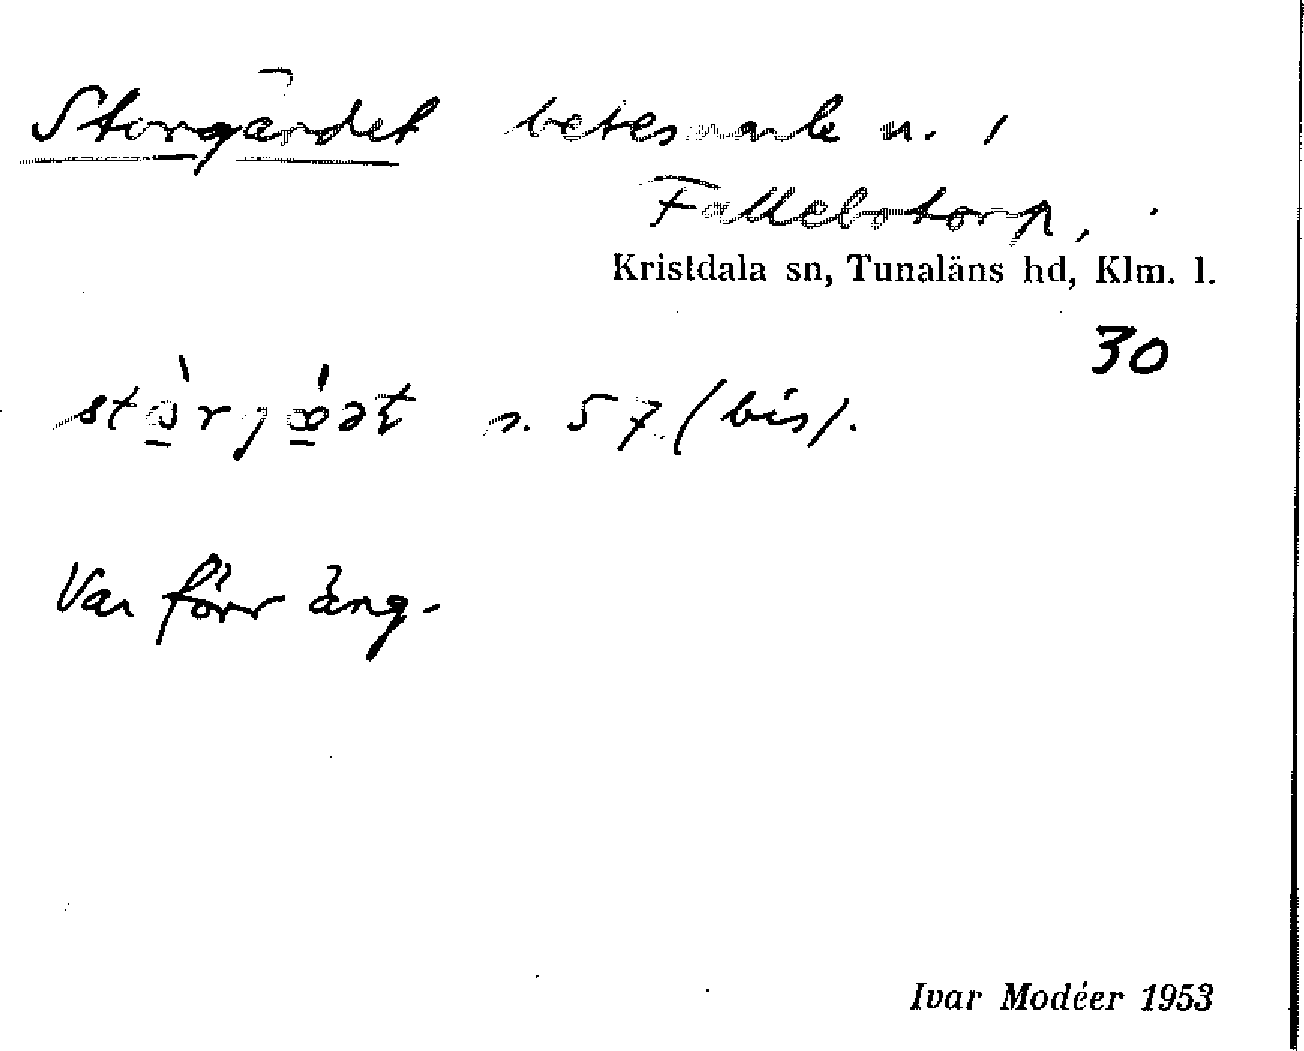 Storgärdet betesmark n. 1
Fallebotorp,
Kristdala sn, Tunaläns hd, Klm. l.
30
s. 57 (bis).
Var förr äng.
Ivar Modéer 1953